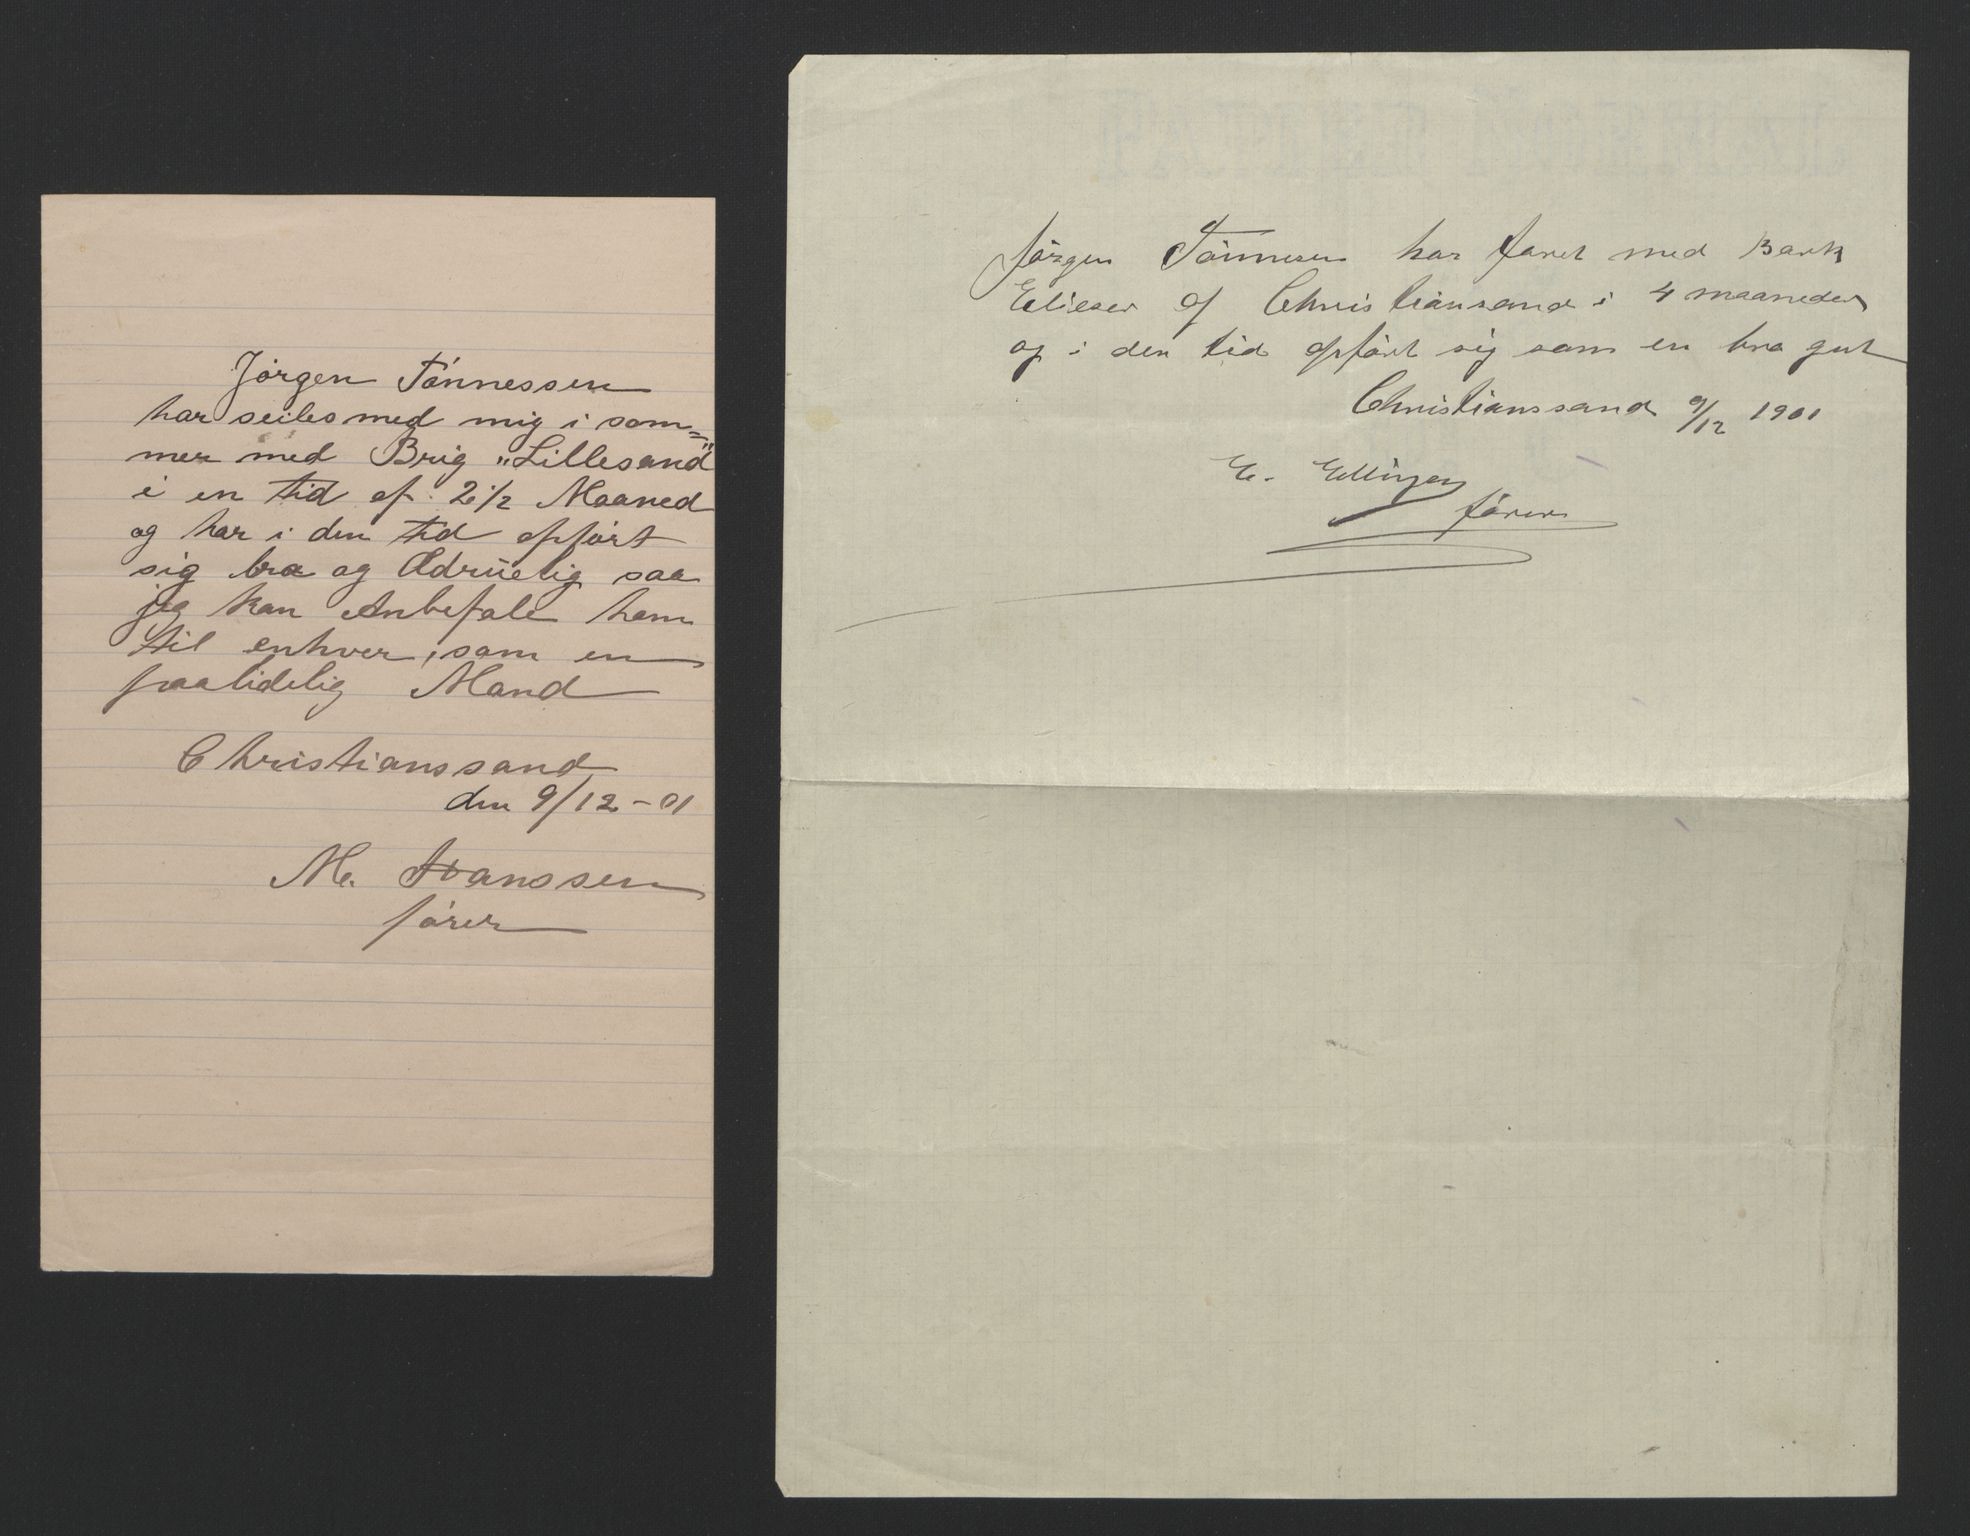 Jörgen Tönnessen
har seiles med mig i som=
mer med Brig „Lillesand"
i en tid af 2 1/2 Maaned
og har i den tid opført
sig bra og Ædruelig saa
jeg kan Anbefale ham
til enhver, som en
paalidelig Mand
Christianssand
den 9/12 - 01
M. Hanssen
fører
Jörgen Tönnesen har faret med Bark
Elieser af Christiansand i 4 maaneder
og i den tid opført sig som en bra gut
Christianssand 9/12 1901
E. Ellingsen
förer